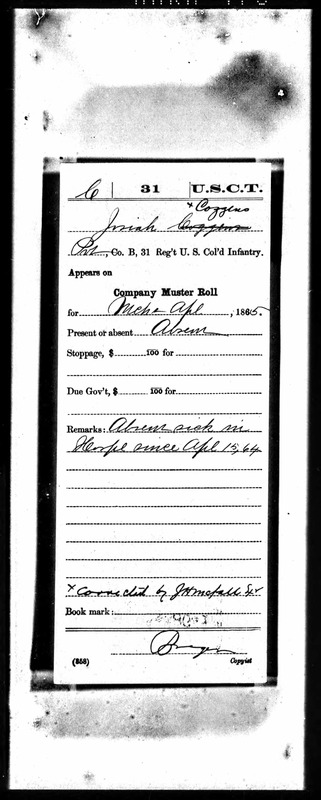 C | 31 | U.S.C.T.
x Cozzens
Josiah Cozzens
Pvt, Co. B, 31 Reg't U. S. Col'd Infantry.
Appears on
Company Muster Roll
for Mch & Apl, 1865.
Present or absent Absent
Stoppage, $ 100 for
Due Gov't, $ 100 for
Remarks: Absent sick in
Hospl since Apl 15, 64
x Corrected by
Book mark:
(358) Copyist